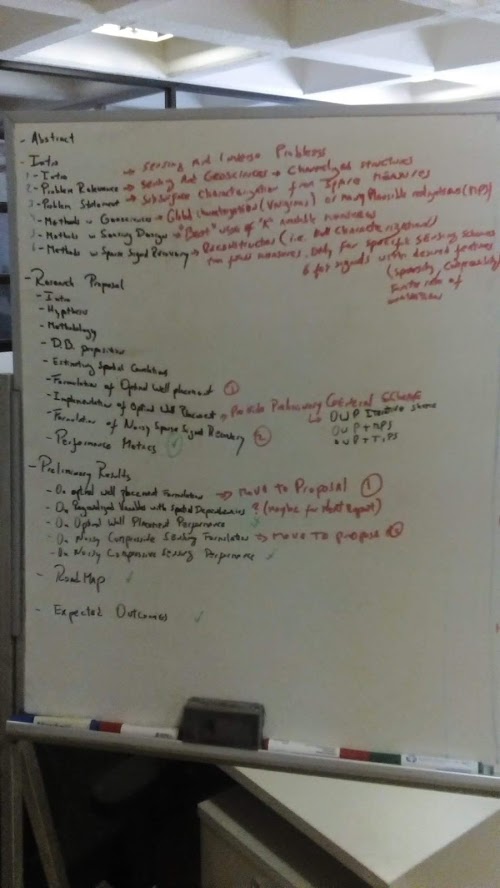 - Abstract
- Intro
1 - Intro → Sensing and Inverse Problems
2 - Problem Relevance → Sensing and Geosciences → Channelized structures
3 - Problem Statement → Subsurface Characterization from sparse measures
- Methods in Geosciences → Global (Variograms) or many Plausible realizations (MPS)
5 - Methods in Sensing Design → "Best" use of "K" available measures
6 - Methods in Sparse Signal Recovery → Reconstruction (i.e. Full Characterization)
from few measures. Only for specific sensing schemes
& for signals with desired features
(sparsity, compressibility,
finite rate of
innovation
- Research Proposal
- Intro
- Hypthesis
- Methodology
- D.B. proposition
- Estimating Spatial Conditions
- Formulation of Optimal Well placement 1
- Implementation of Optimal Well Placement → Provide Preliminary General Scheme
↳ OWP Iterative scheme
- Formulation of Noisy Sparse Signal Recovery 2
OWP + MPS
- Performance Metrics ✓
OWP + TIPS
- Preliminary Results
- On optimal well placement Formulation → Move to Proposal 1
- On Regionalized Variable with Spatial Dependencies ? (maybe for Report)
- On Optimal Well Placement Performance ✓
- On Noisy Compressive Sensing Formulation → Move to propose 2
- On Noisy Compressive Sensing Performance ✓
- Road Map ✓
- Expected Outcomes ✓